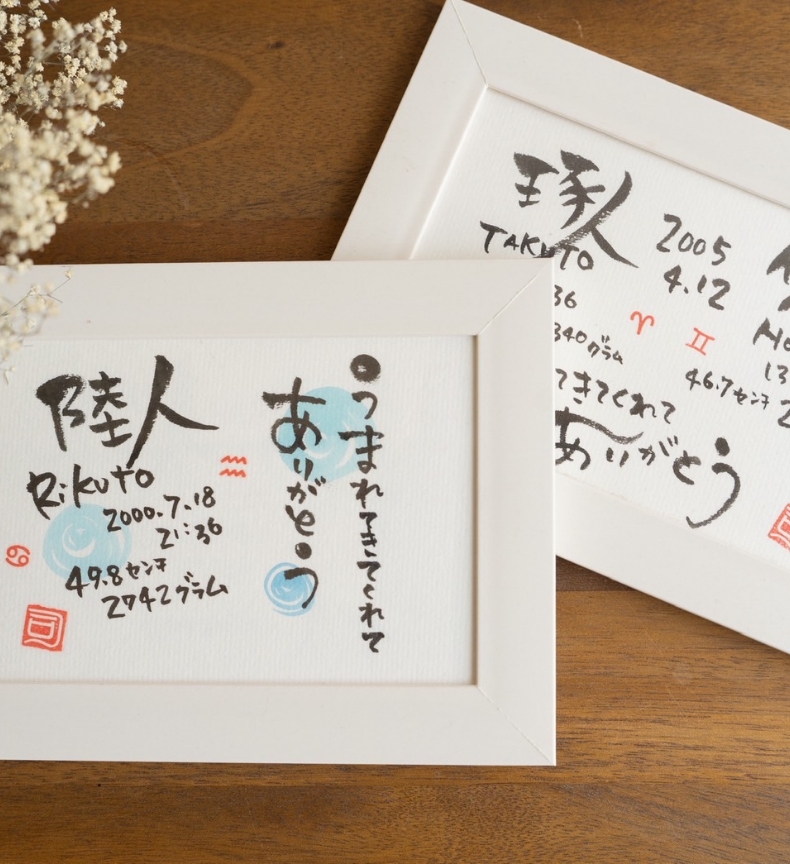 陸人
Rikuto
2000.7.18
21:36
49.8センチ
2742グラム
うまれてきてくれて
ありがとう
琢人
TAKUTO
2005
4.12
36
340グラム
46.7センチ
てきてくれて
ありがとう
13